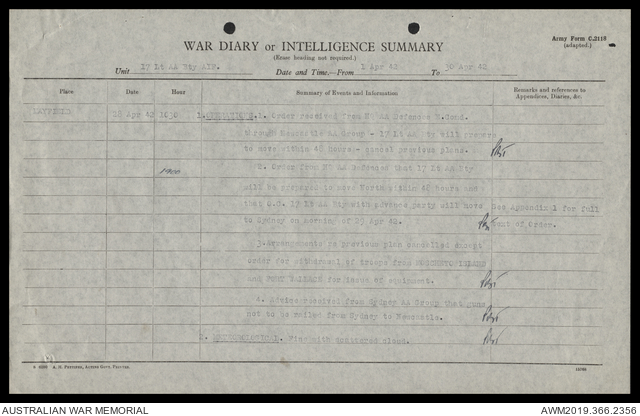 Army Form C.2118
(adapted.)
WAR DIARY or INTELLIGENCE SUMMARY
(Erase heading not required.)
Unit 17 Lt AA Bty AIF. Date and Time—From 1 Apr 42 To 30 Apr 42
Place Date Hour Summary of Events and Information Remarks and references to
Appendices, Diaries, &c.
MAYFIELD 28 Apr 42 1030 1. OPERATIONS. 1. Order received from HQ AA Defences E.Comd.
through Newcastle AA Group - 17 Lt AA Bty will prepare
to move within 48 hours - cancel previous plans.
1900 2. Order from HQ AA Defences that 17 Lt AA Bty
will be prepared to move North within 48 hours and
that O.C. 17 Lt AA Bty with advance party will move See Appendix 1 for full
to Sydney on morning of 29 Apr 42. text of Order.
3. Arrangements as previous plan cancelled except
order for withdrawal of troops from
and for issue of equipment.
4. Advice received from Sydney AA Group that guns
not to be railed from Sydney to Newcastle.
2. METEOROLOGICAL. Fine with scattered cloud.
A. H. PETTIFER, ACTING GOVT. PRINTER.
AUSTRALIAN WAR MEMORIAL
AWM2019.366.2356